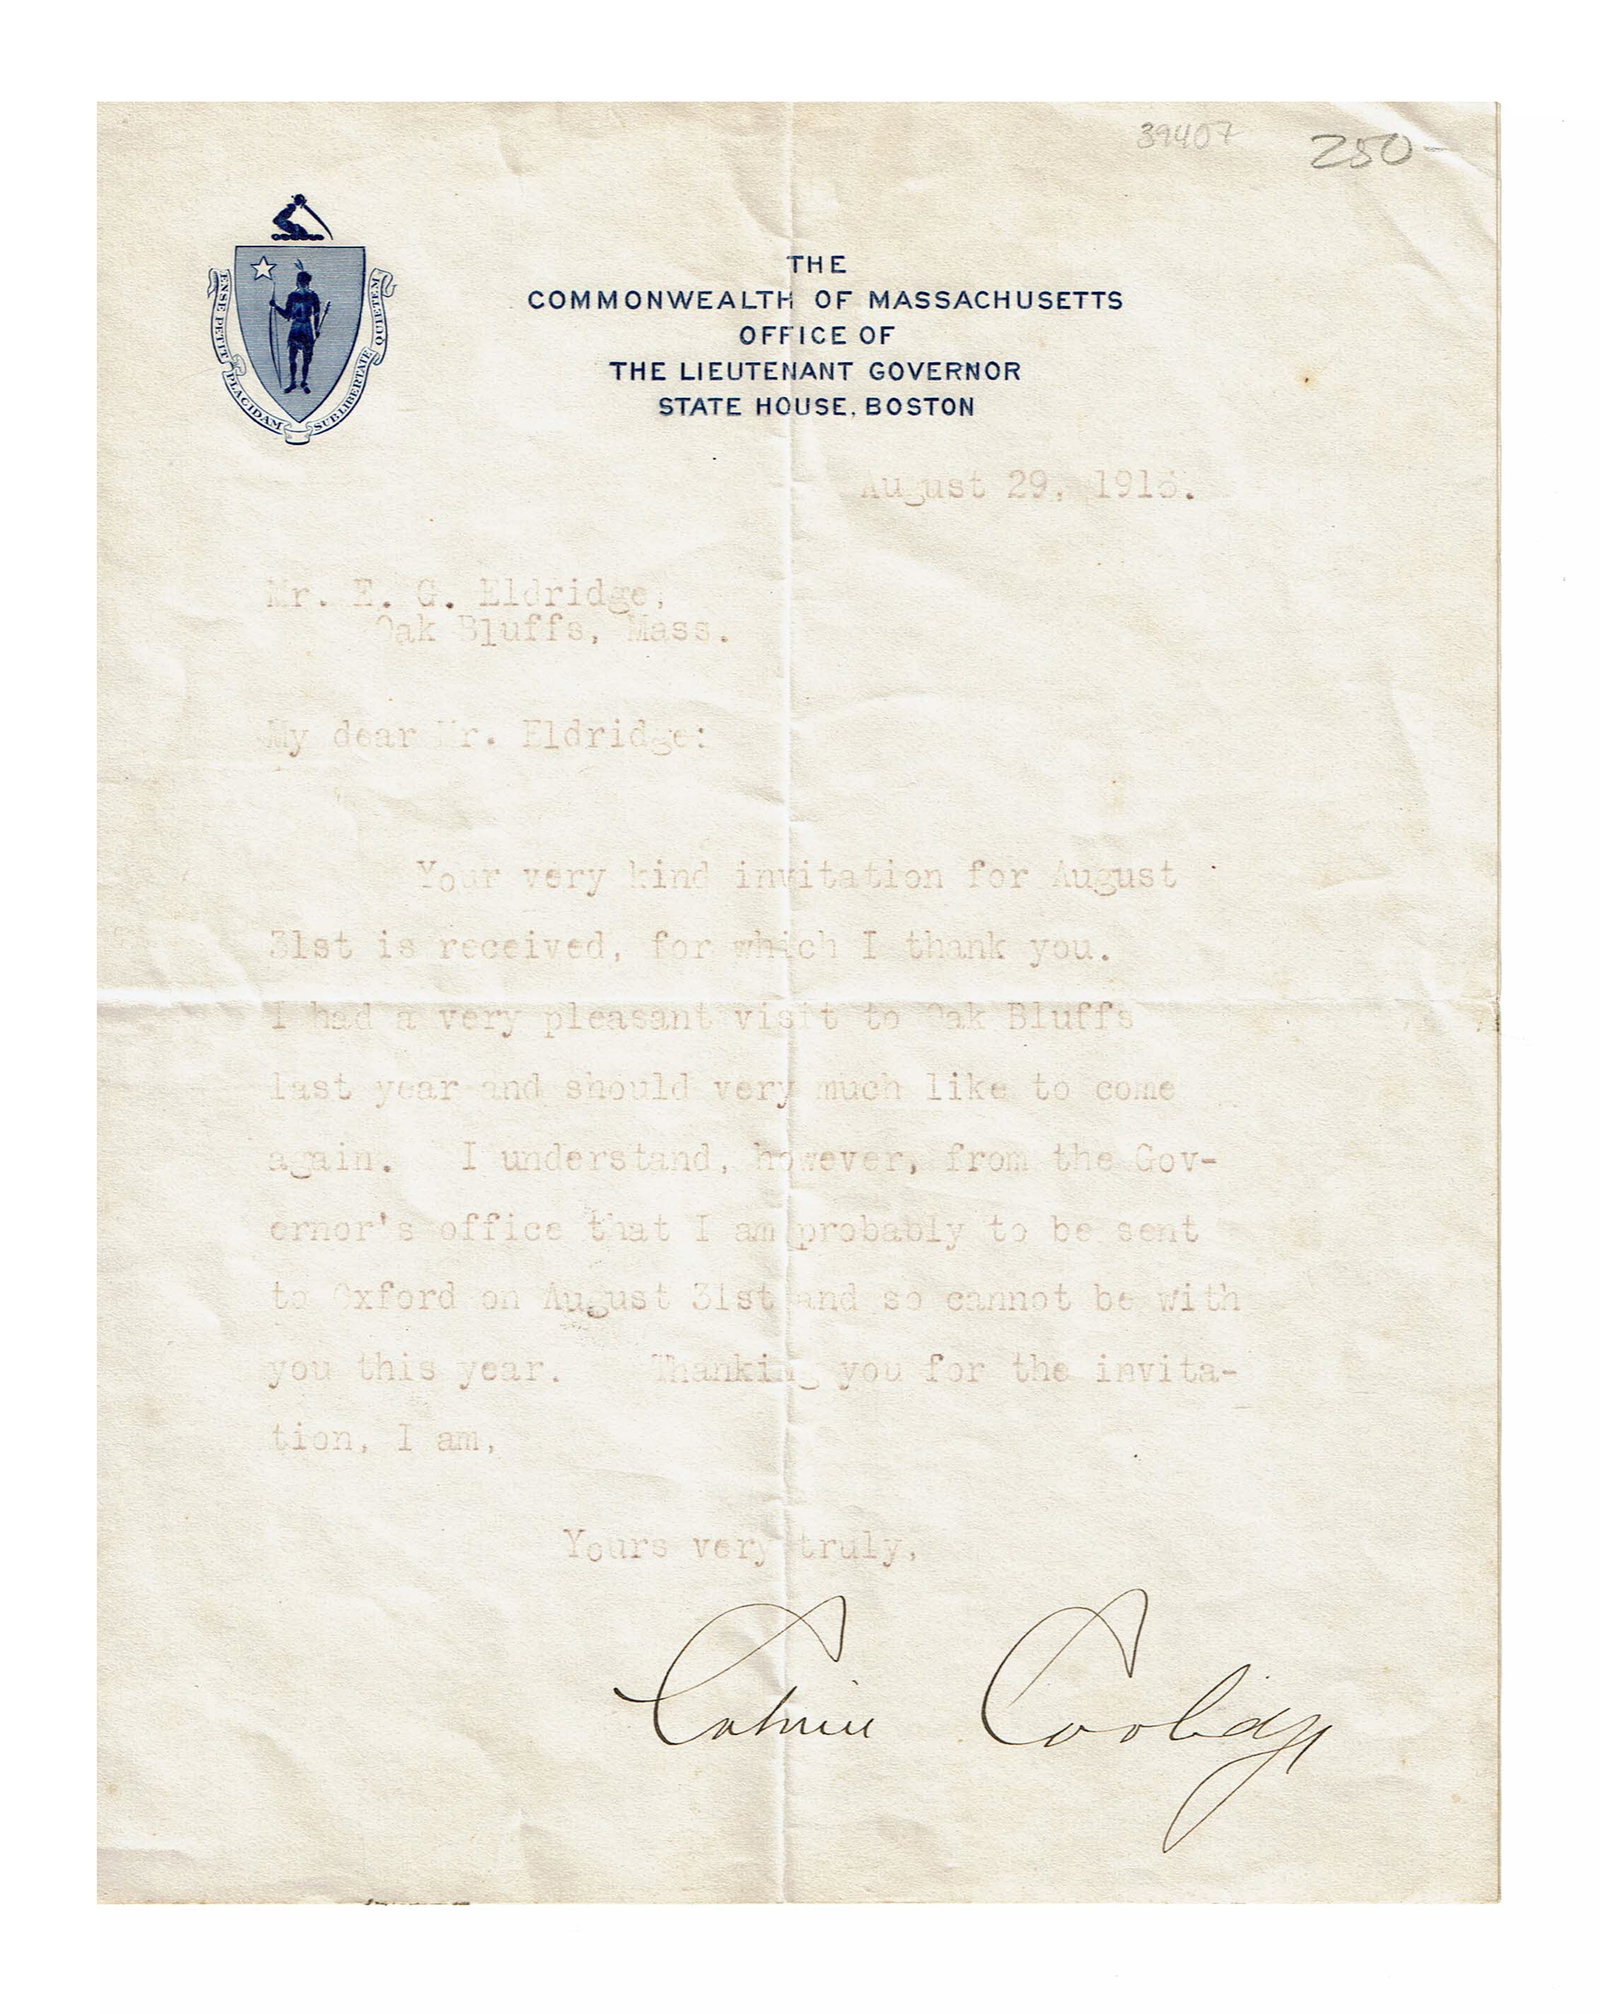 39407 250-
ENSE PETIT PLACIDAM SUB LIBERTATE QUIETEM
THE
COMMONWEALTH OF MASSACHUSETTS
OFFICE OF
THE LIEUTENANT GOVERNOR
STATE HOUSE, BOSTON
August 29,
Mr. E. G. Eldridge,
Oak Bluffs, Mass.
My dear Mr. Eldridge:
Your very kind invitation for August
31st is received, for which I thank you.
I had a very pleasant visit to Oak Bluffs
last year and should very much like to come
again. I understand, however, from the Gov-
ernor's office that I am probably to be sent
to Oxford on August 31st and so cannot be with
you this year. Thanking you for the invita-
tion, I am,
Yours very truly,
Calvin Coolidge